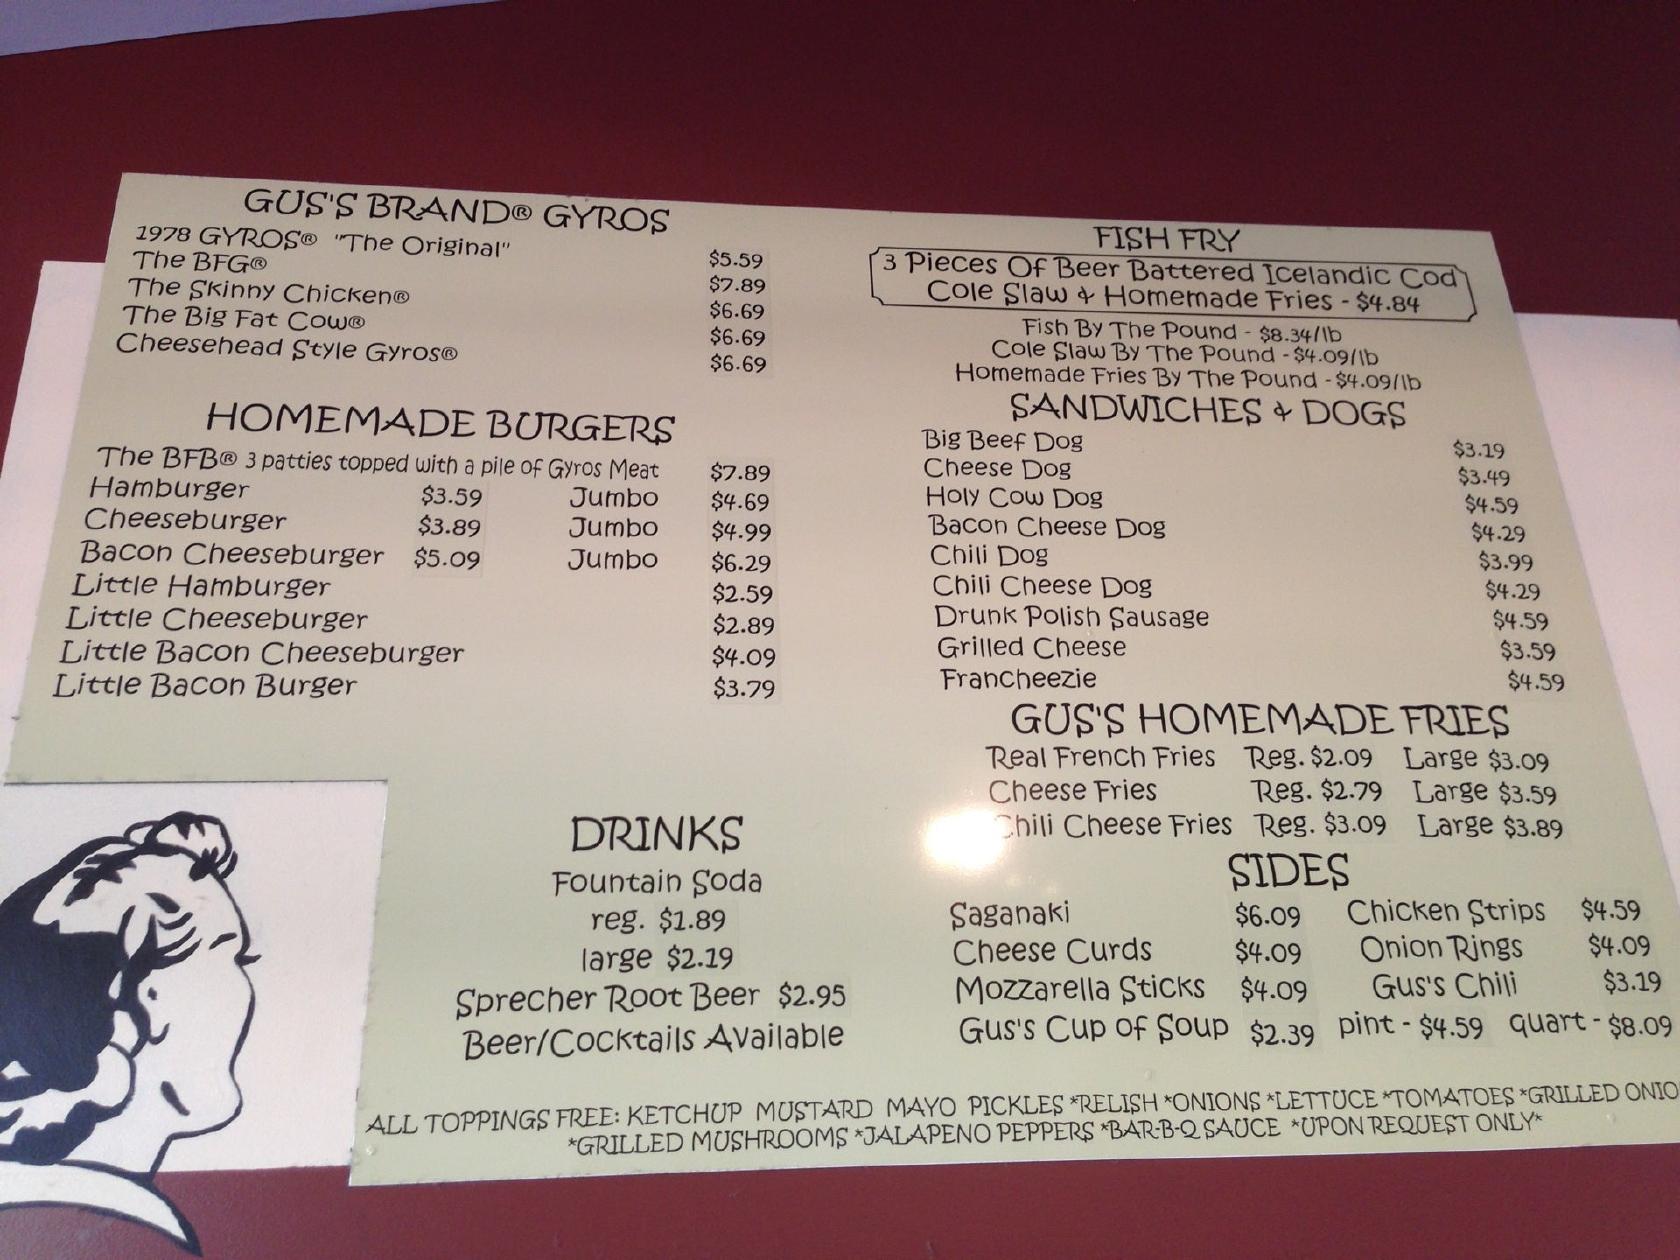 GUS'S BRAND® GYROS
1978 GYROS® "The Original" $5.59
The BFG® $7.89
The Skinny Chicken® $6.69
The Big Fat Cow® $6.69
Cheesehead Style Gyros® $6.69
HOMEMADE BURGERS
The BFB® 3 patties topped with a pile of Gyros Meat $7.89
Hamburger $3.59 Jumbo $4.69
Cheeseburger $3.89 Jumbo $4.99
Bacon Cheeseburger $5.09 Jumbo $6.29
Little Hamburger $2.59
Little Cheeseburger $2.89
Little Bacon Cheeseburger $4.09
Little Bacon Burger $3.79
DRINKS
Fountain Soda
reg. $1.89
large $2.19
Sprecher Root Beer $2.95
Beer/Cocktails Available
FISH FRY
3 Pieces Of Beer Battered Icelandic Cod
Cole Slaw & Homemade Fries - $4.84
Fish By The Pound - $8.34/lb
Cole Slaw By The Pound - $4.09/lb
Homemade Fries By The Pound - $4.09/lb
SANDWICHES & DOGS
Big Beef Dog $3.19
Cheese Dog $3.49
Holy Cow Dog $4.59
Bacon Cheese Dog $4.29
Chili Dog $3.99
Chili Cheese Dog $4.29
Drunk Polish Sausage $4.59
Grilled Cheese $3.59
Francheezie $4.59
GUS'S HOMEMADE FRIES
Real French Fries Reg. $2.09 Large $3.09
Cheese Fries Reg. $2.79 Large $3.59
Chili Cheese Fries Reg. $3.09 Large $3.89
SIDES
Saganaki $6.09 Chicken Strips $4.59
Cheese Curds $4.09 Onion Rings $4.09
Mozzarella Sticks $4.09 Gus's Chili $3.19
Gus's Cup of Soup $2.39 pint - $4.59 quart - $8.09
ALL TOPPINGS FREE: KETCHUP MUSTARD MAYO PICKLES *RELISH *ONIONS *LETTUCE *TOMATOES *GRILLED ONIO
*GRILLED MUSHROOMS *JALAPENO PEPPERS *BAR-B-Q SAUCE *UPON REQUEST ONLY*